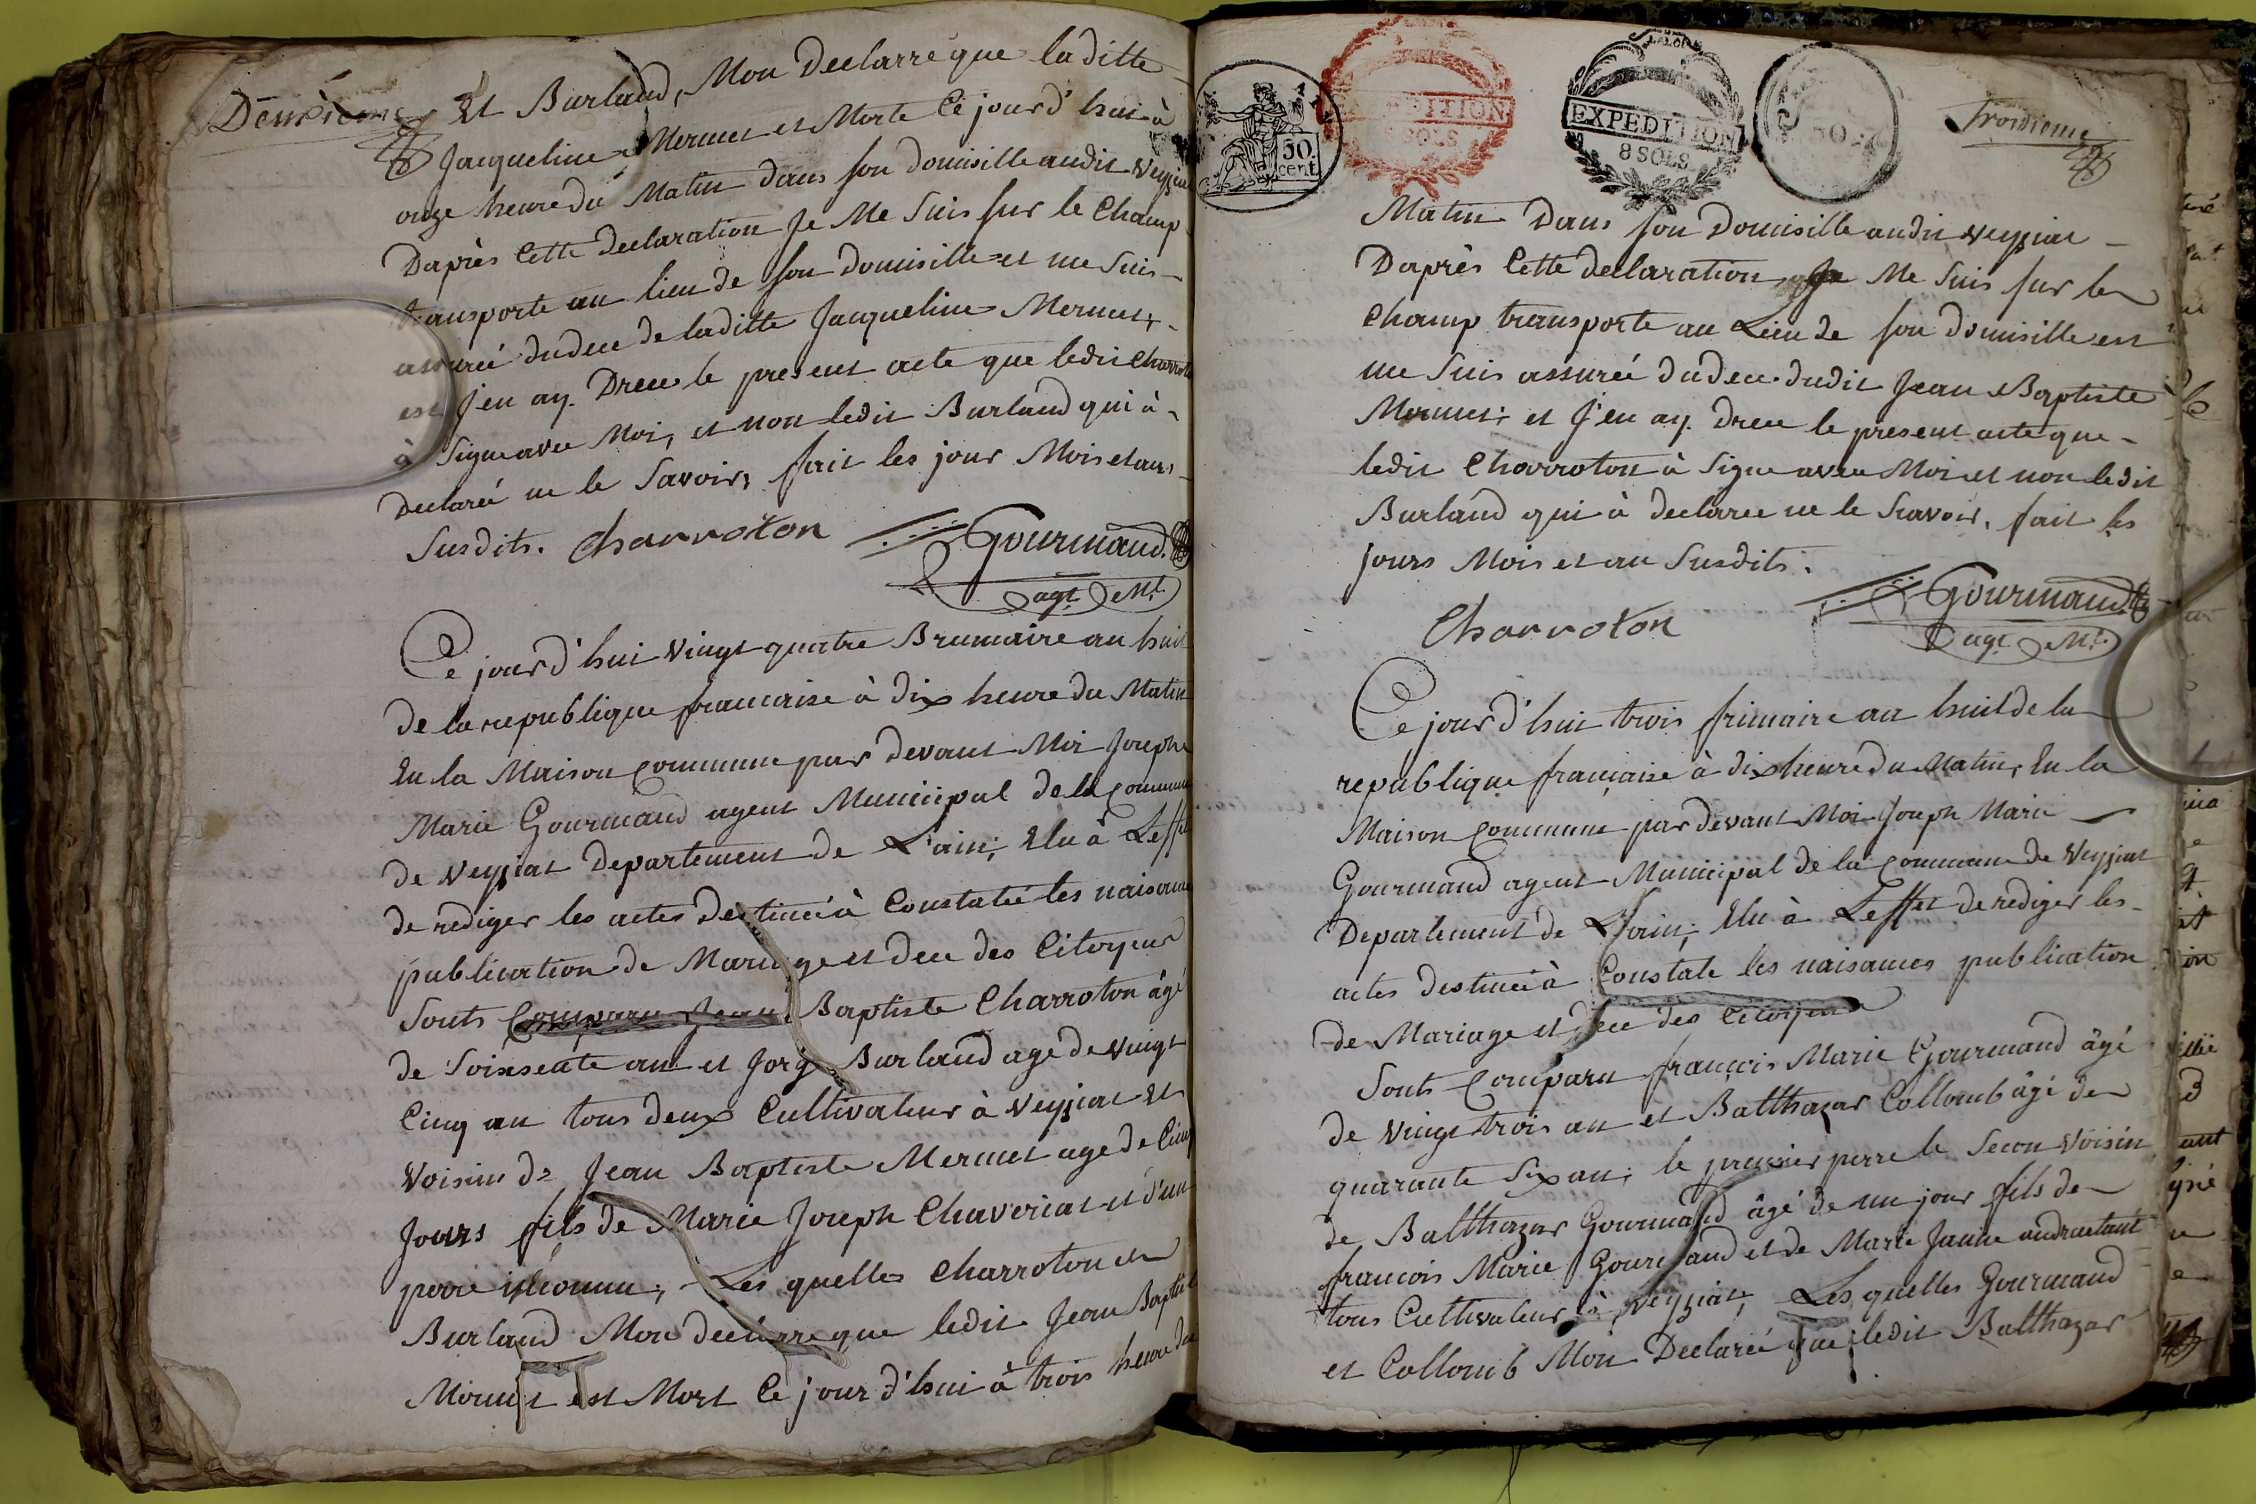 Deuxieme
Et Burland, Mon Declarré que laditte
Jacqueline Mermet et Morte Ce jourd'hui à
onze heure du Matin dans son domisille audit Veyziat
Daprès Cette declaration Je Me Suis sur le Champ
transporte au lieu de son domisille et me Suis
assurée du dece de laditte Jacqueline Mermet,
est J'en ay Drece le present acte que ledit Charroton
à Signe avec Moi, et non ledit Burland qui à
Declareé ne le Savoir, fait les jour Mois et ans
Susdits. Charroton Gourmand
agt Ml.
Ce jourd'hui Vingt quatre Brumaire an huit
de la republique francaise à dix heure du Matin
En la Maison Commune par devant Moi Joseph
Marie Gourmand agent Municipal de la Commune
de Veyziat Departement de L'ain, Elu à Leffet
de rediger les actes destineé à Constateé les naisances
publication de Mariage et dece des Citoyens
Sonts Comparu Jean Baptiste Charroton âgé
de Soixseate an et Jorg Burland age de Vingt
Cinq an tous deux Cultivateur à Veyziat Et
Voisin de Jean Baptiste Mermet age de Cinq
Jours fils de Marie Joseph Chaveriat et d'un
perre inconnu, Les quelles Charroton et
Burland Mon declarre que ledit Jean Baptiste
Mermet est Mort Ce jour d'hui à trois heure du
50 cent
EXPEDITION
8 SOLS
EXPEDITION
8 SOLS
50
Troisieme
Matin Dans son Domisille audit Veyziat
Daprès Cette declaration Je Me Suis sur le
Champ transporte au Lieu de son domisille est
me Suis assureé du dece dudit Jean Baptiste
Mermet, et J'en ay Drece le present acte que
ledit Charroton à Signe avec Moi et non ledit
Burland qui à declaree ne le Savoir, fait les
jours Mois et an Susdits.
Charroton Gourmand
agt Ml.
Ce jour d'hui trois frimaire an huit de la
republique francaise à dix heure du Matin, En la
Maison Commune par devant Moi Joseph Marie
Gourmand agent Municipal de la Commune de Veyziat
Departement de L'ain, Elu à Leffet de rediger les
actes destineé à Constate les naisances publication
de Mariage et dece des Citoyens
Sonts Comparu francois Marie Gourmand âgé
de Vingt trois an et Balthazar Collomb âgé de
quarante Six an, le premier perre le Secon Voisin
de Balthazar Gourmand âgé de un jour fils de
francois Marie Gourmand et de Marie Janne
tous Cultivateur à Veyziat, Les quelles Gourmand
et Collomb Mon Declareé que ledit Balthazar